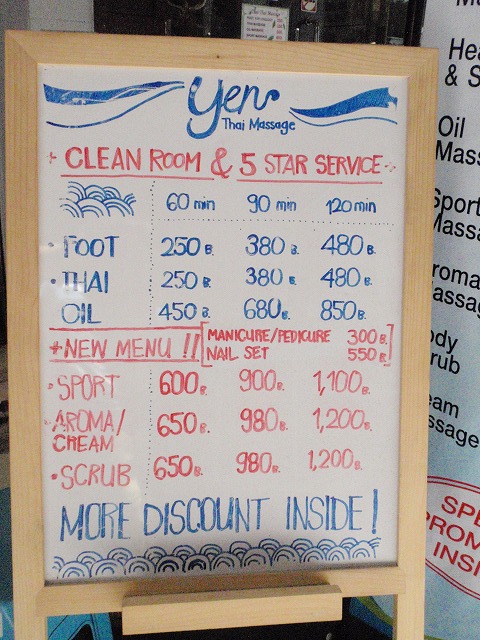 Yen
Thai Massage
CLEAN ROOM & 5 STAR SERVICE
60 min 90 min 120 min
FOOT 250 B. 380 B. 480 B.
THAI 250 B. 380 B. 480 B.
OIL 450 B. 680 B. 850 B.
+NEW MENU !! [MANICURE/PEDICURE 300 B.
NAIL SET 550 B.]
SPORT 600 B. 900 B. 1,100 B.
AROMA/
CREAM 650 B. 980 B. 1,200 B.
SCRUB 650 B. 980 B. 1,200 B.
MORE DISCOUNT INSIDE!
& S
Oil
Mass
Sport
Massa